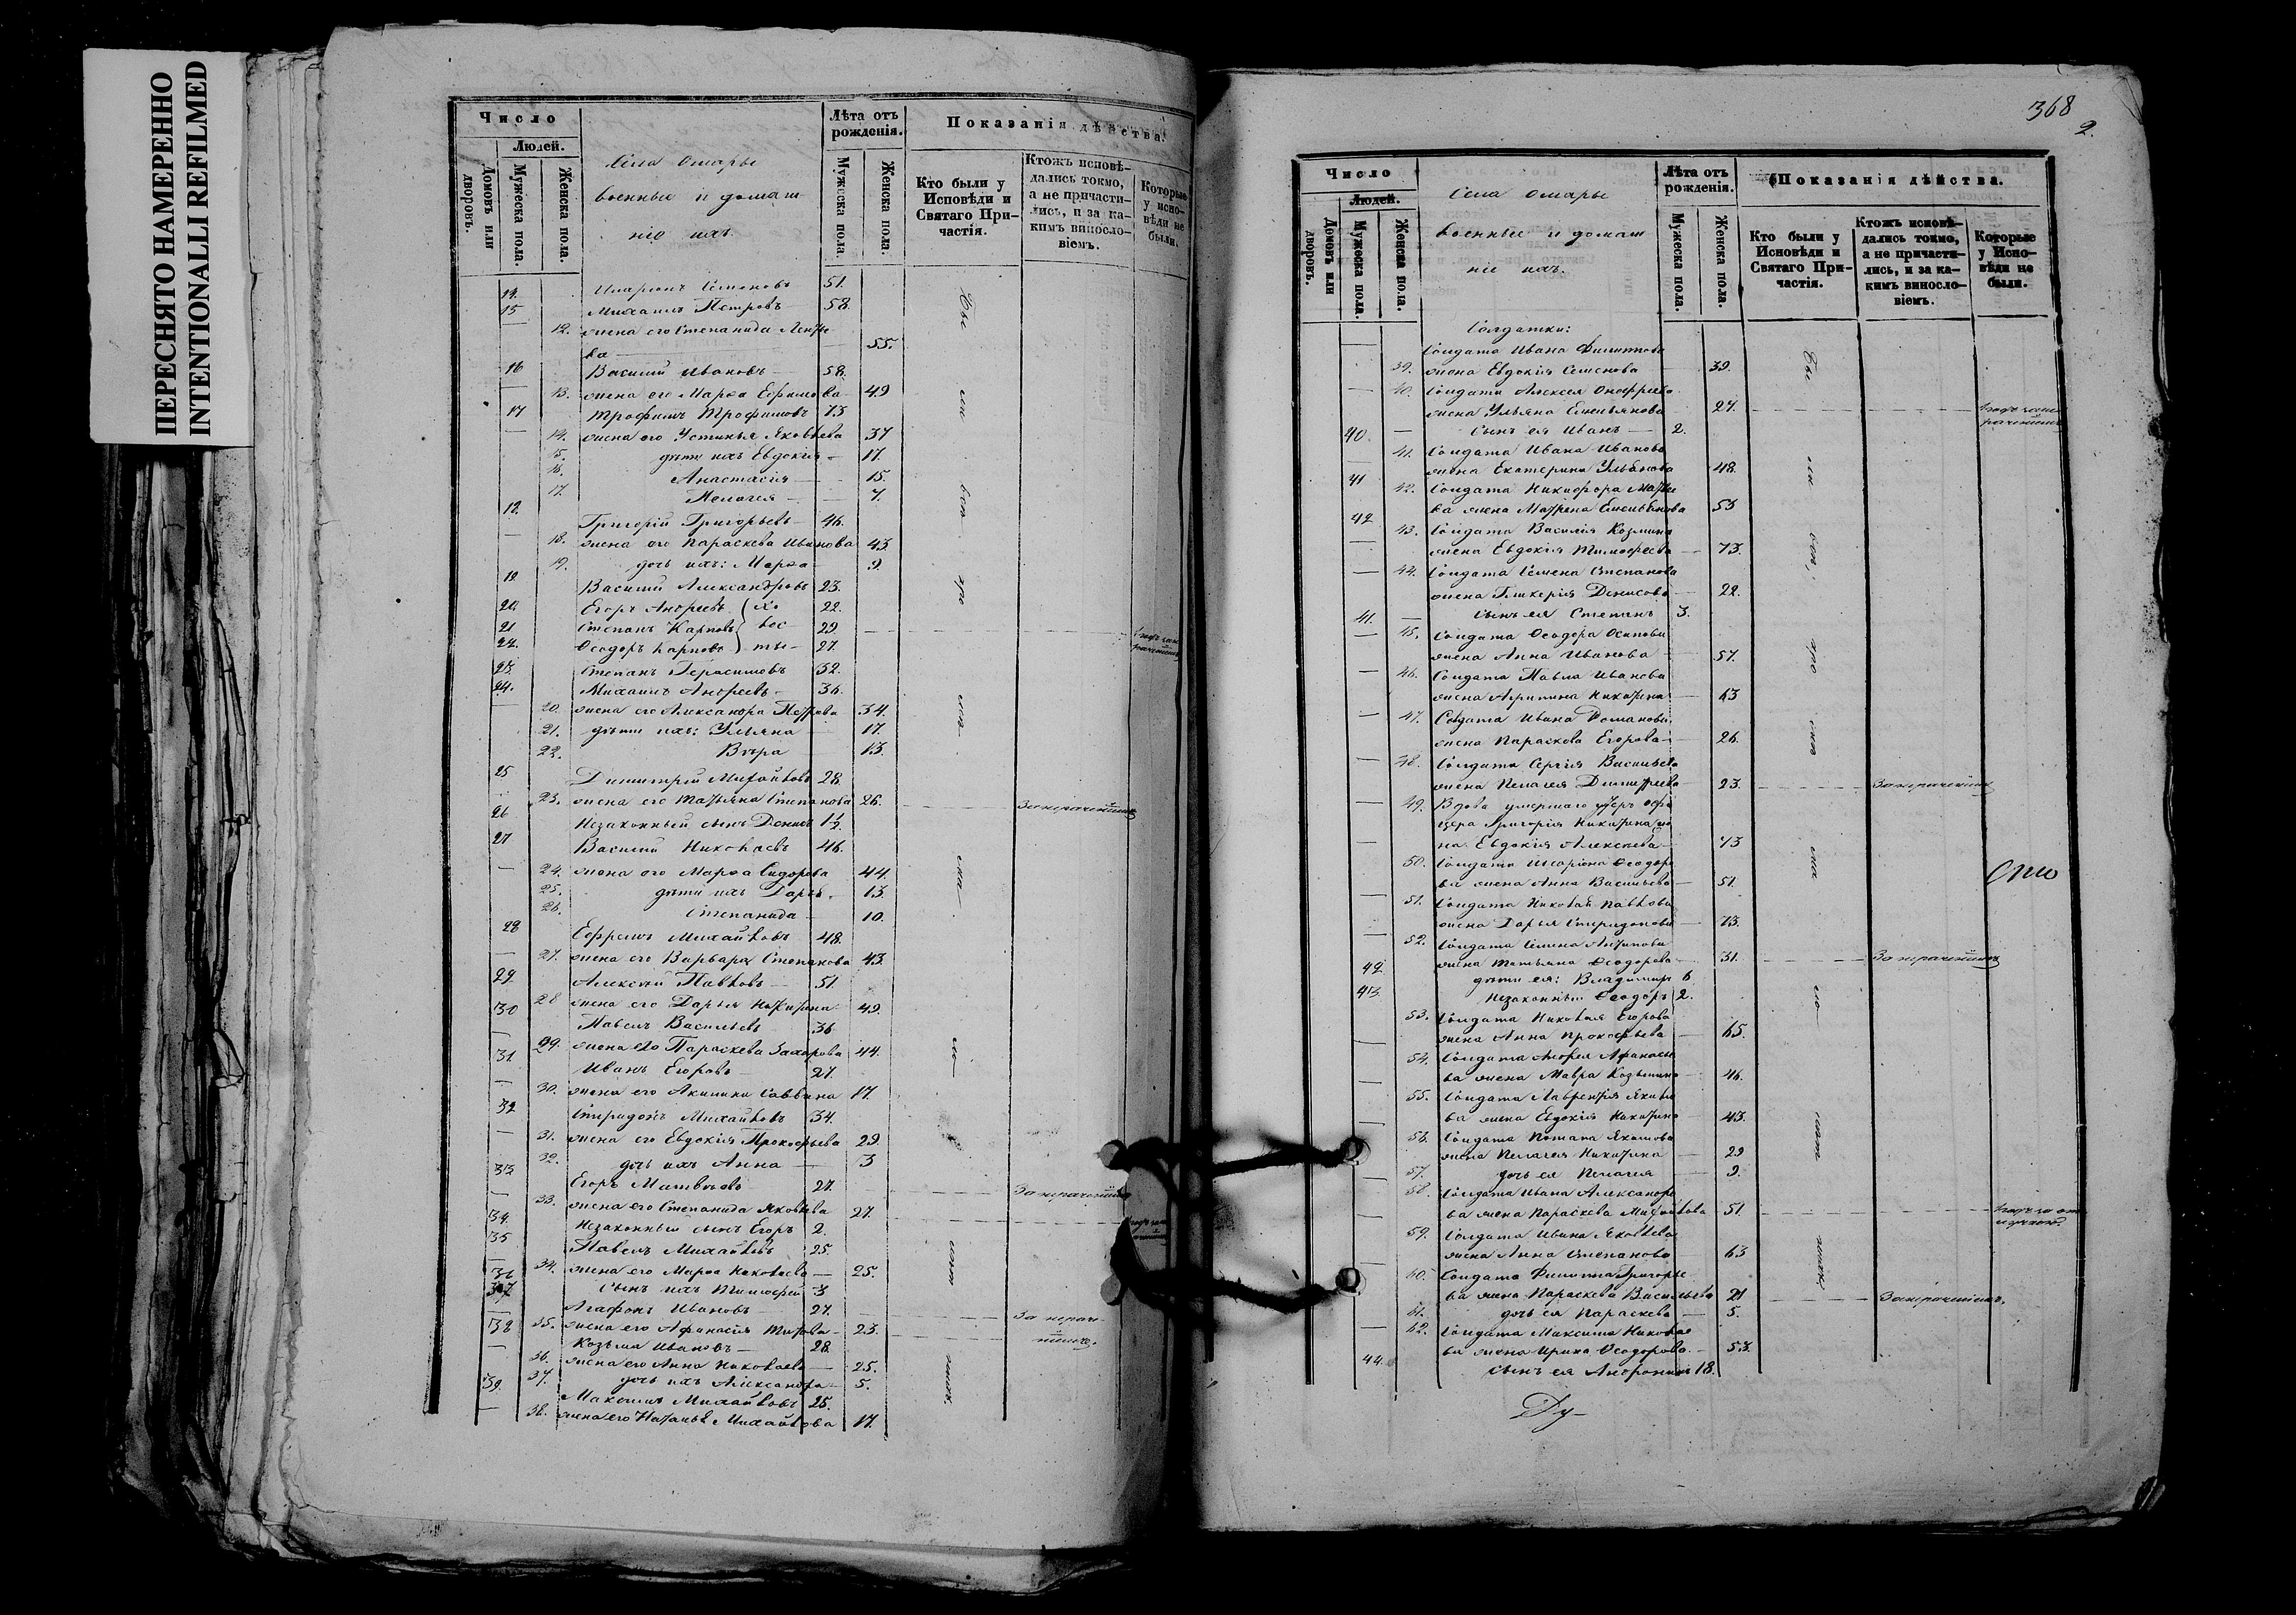 ПЕРЕСНЯТО НАМЕРЕННО
INTENTIONALLI REFILMED
Число
Людей.
Домовъ или дворовъ.
Мужеска пола.
Женска пола.
Села Омары
военные и домаш
ніе ихъ
Лѣта отъ рожденія.
Мужеска пола.
Женска пола.
Показанія дѣйства.
Кто были у Исповѣди и Святаго При-
частія.
Ктожъ исповѣ-
дались токмо,
а не причасти-
лись, и за ка-
кимъ виносло-
віемъ.
Которые
у испо-
вѣди не
были.
14. Иларіонъ Семеновъ 51.
15 Михаилъ Петровъ 58.
12. жена его Степанида
ва 55.
16 Василій Ивановъ 58.
13. жена его Марѳа Ефимова 49
17 Трофимъ Трофимовъ 73
14. жена его Устинья Яковлева 37
15. дѣти ихъ Евдокія 17.
16. Анастасія 15.
17. Пелагея 7.
18. Григорій Григорьевъ 46.
18. жена его Параскева Иванова 43.
19. дочь ихъ: Марѳа 9.
19. Василій Александровъ 23.
20. Егоръ Андреевъ 22.
21 Степанъ Карповъ 29.
22. Ѳеодоръ Карповъ 27.
хо
лос
ты
23. Степанъ Герасимовъ 32.
24. Михаилъ Андреевъ 36.
20. жена его Александра Петрова 34.
21. дѣти ихъ: Ульяна 17.
22. Вѣра 13.
25 Димитрій Михайловъ 28.
23. жена его Татьяна Степанова 26. За нераченіемъ
26 Незаконный сынъ Денисъ 1½.
27 Василій Николаевъ 46.
24. жена его Марѳа Сидорова 44.
25. дѣти ихъ Дарья 13.
26. Степанида 10.
28 Ефремъ Михайловъ 48.
27. жена его Варвара Степанова 43.
29 Алексѣй Павловъ 51.
28 жена его Дарья Никитина 49.
30 Павелъ Васильевъ 36
29. жена его Параскева Захарова 44.
31 Иванъ Егоровъ 27.
30. жена его Акилина Саввина 17.
32 Спиридонъ Михайловъ 34.
31. жена его Евдокія Прокофьева 29.
32. дочь ихъ Анна 3
33 Егоръ Матвѣевъ 27. За нераченіемъ
33. жена его Степанида Яковлева 27.
34. Незаконный сынъ Егоръ 2.
35 Павелъ Михайловъ 25.
34. жена его Марѳа Николаева 25.
36 сынъ ихъ Тимофей 3
37 Агафонъ Ивановъ 27. За нерач-
35. жена его Афанасія Титова 23. ніемъ.
38 Козьма Ивановъ 28.
36. жена его Анна Николаева 25.
37. дочь ихъ Александра 5.
39. Максимъ Михайловъ 25.
38. жена его Наталья Михайлова 17.
368
2.
Число
Людей.
Домовъ или дворовъ.
Мужеска пола.
Женска пола.
Села Омары
военные и домаш
ніе ихъ.
Лѣта отъ рожденія.
Мужеска пола.
Женска пола.
Показанія дѣйства.
Кто были у
Исповѣди и
Святаго При-
частія.
Ктожъ исповѣ-
дались токмо,
а не причасти-
лись, и за ка-
кимъ виносло-
віемъ.
Которые
у Испо-
вѣди не
были.
Солдатки:
Солдата Ивана Филиппова
39. жена Евдокія Семенова 39.
40. Солдата Алексея Онофріева
жена Ульяна Емельянова 27.
40. сынъ ея Иванъ 2.
41. Солдата Ивана Иванова
жена Екатерина Ульянова 48.
41 42. Солдата Никифора Матве
ва жена Матрена Емельянова 53
42 43. Солдата Василія Козмина
жена Евдокія Тимофеева 73.
44. Солдата Семена Степанова
жена Гликерія Денисова 22.
41. сынъ ея Степанъ 3.
45. Солдата Ѳеодора Осипова
жена Анна Иванова 57.
46. Солдата Павла Иванова
жена Агрипина Никитина 63
47. Солдата Ивана Романова
жена Параскева Егорова 26.
48. Солдата Сергія Васильева
жена Пелагея Димитріева 23. За нераченіемъ
49. Вдова умершаго унтеръ офи
цера Григорія Никитина же
на Евдокія Алексеева 73
50. Солдата Иларіона Ѳеодоро
ва жена Анна Васильева 51.
51. Солдата Николая Павлова
жена Дарья Спиридонова 73.
52. Солдата Семена Антипова
жена Татьяна Ѳеодорова 31. За нераченіемъ
42. дѣти ея: Владимиръ 6
43. незаконный Ѳеодоръ 2.
53. Солдата Николая Егорова
жена Анна Прокофьева 65.
54. Солдата Андрея Афанасье
ва жена Мавра Козьмина 46.
55. Солдата Лаврентія Яковле
ва жена Евдокія Никитина 43.
56. Солдата Потапа Якимова
жена Пелагея Никитина 29
57. дочь ея Пелагея 9.
58. Солдата Ивана Александро
ва жена Параскева Михайлова 51
59. Солдата Ивана Яковлева
жена Анна Степанова 63
60. Солдата Филиппа Григорье
ва жена Параскева Васильева 21 За нераченіемъ.
61. дочь ея Параскева 5.
62. Солдата Максима Николае
ва жена Ирина Ѳеодорова 53.
44. сынъ ея Андроникъ 18.
Ду-